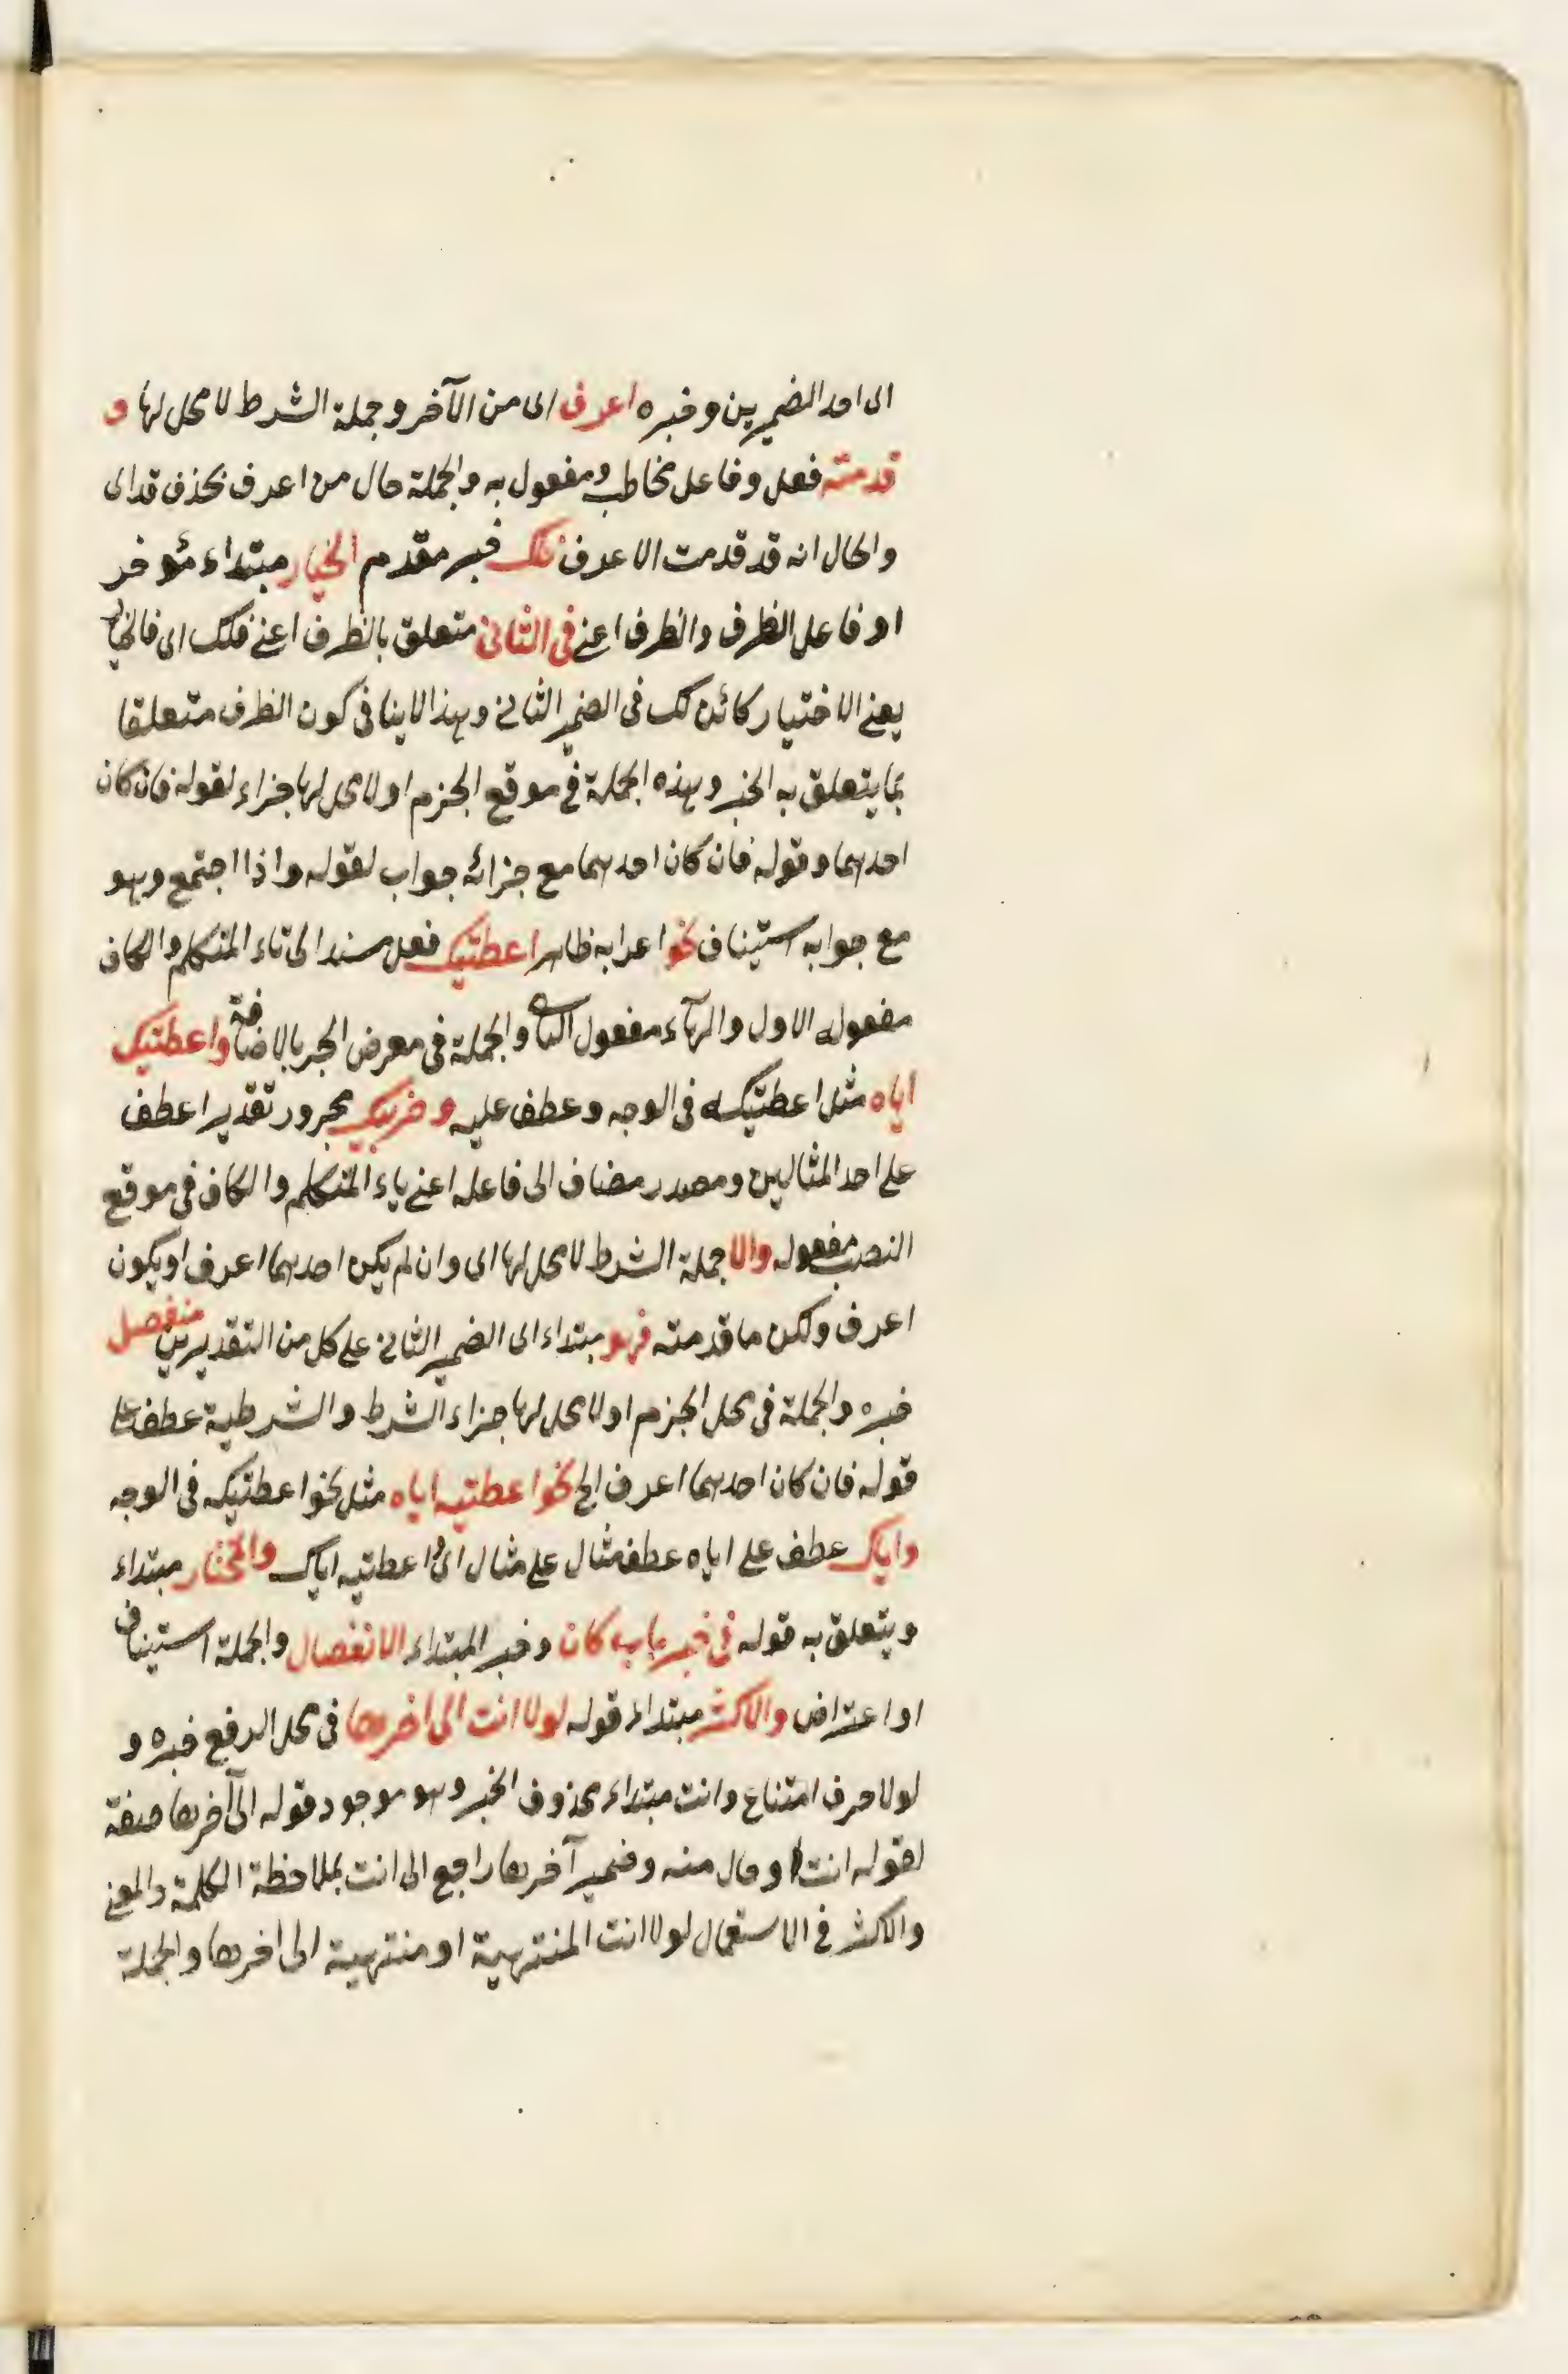 الى احد الضميرين وخبره اعرف اى من الآخر وجملة الشرط لا محل لها و
قدمته فعل وفاعل مخاطب ومفعول به والجملة حال من اعرف بحذف قد اى
والحال انه قد قدمت الاعرف فلك خبر مقدم الخيار مبتداء مؤخر
او فاعل الظرف والظرف اعنى فى الثانى متعلق بالظرف اعنى فلك اى فالخيار
يعنى الاختيار كائن لك فى الضمير الثانى وهذا لا ينافى كون الظرف متعلقا
بما يتعلق به الخبر وهذه الجملة فى موقع الجزم او لا محل لها جزاء لقوله فان كان
احدهما وقوله فان كان احدهما مع جزائه جواب لقوله واذا اجتمع وهو
مع جوابه استيناف نحو اعرابه ظاهر اعطيتك فعل مسند الى تاء المتكلم والكاف
مفعوله الاول والهآء مفعول الثانى والجملة فى معرض الجر بالاضافة واعطيتك
اياه مثل اعطيتكه فى الوجه وعطف عليه وضربيك مجرور تقديرا عطف
على احد المثالين ومصدر مضاف الى فاعله اعنى ياء المتكلم والكاف فى موقع
النصب مفعوله والا جملة الشرط لا محل لها اى وان لم يكن احدهما اعرف او يكون
اعرف ولكن ما قدمته فهو مبتداء اى الضمير الثانى على كل من التقديرين منفصل
خبره والجملة فى محل الجزم او لا محل لها جزاء الشرط والشرطية عطف على
قوله فان كان احدهما اعرف الخ نحو اعطيته اياه مثل نحو اعطيتكه فى الوجه
واياك عطف على اياه عطف مثال على مثال اى اعطيته اياك والمختار مبتداء
ويتعلق به قوله فى خبر باب كان وخبر المبتداء الانفصال والجملة استيناف
او اعتراض والاكثر مبتداء قوله لولا انت الى اخرها فى محل الرفع خبره و
لولا حرف امتناع وانت مبتداء محذوف الخبر وهو موجود قوله الى آخرها صفة
لقوله انت او حال منه وضمير آخرها راجع الى انت بملاحظة الكلمة والمعنى
والاكثر فى الاستعمال لولا انت المنتهية او منتهية الى اخرها والجملة